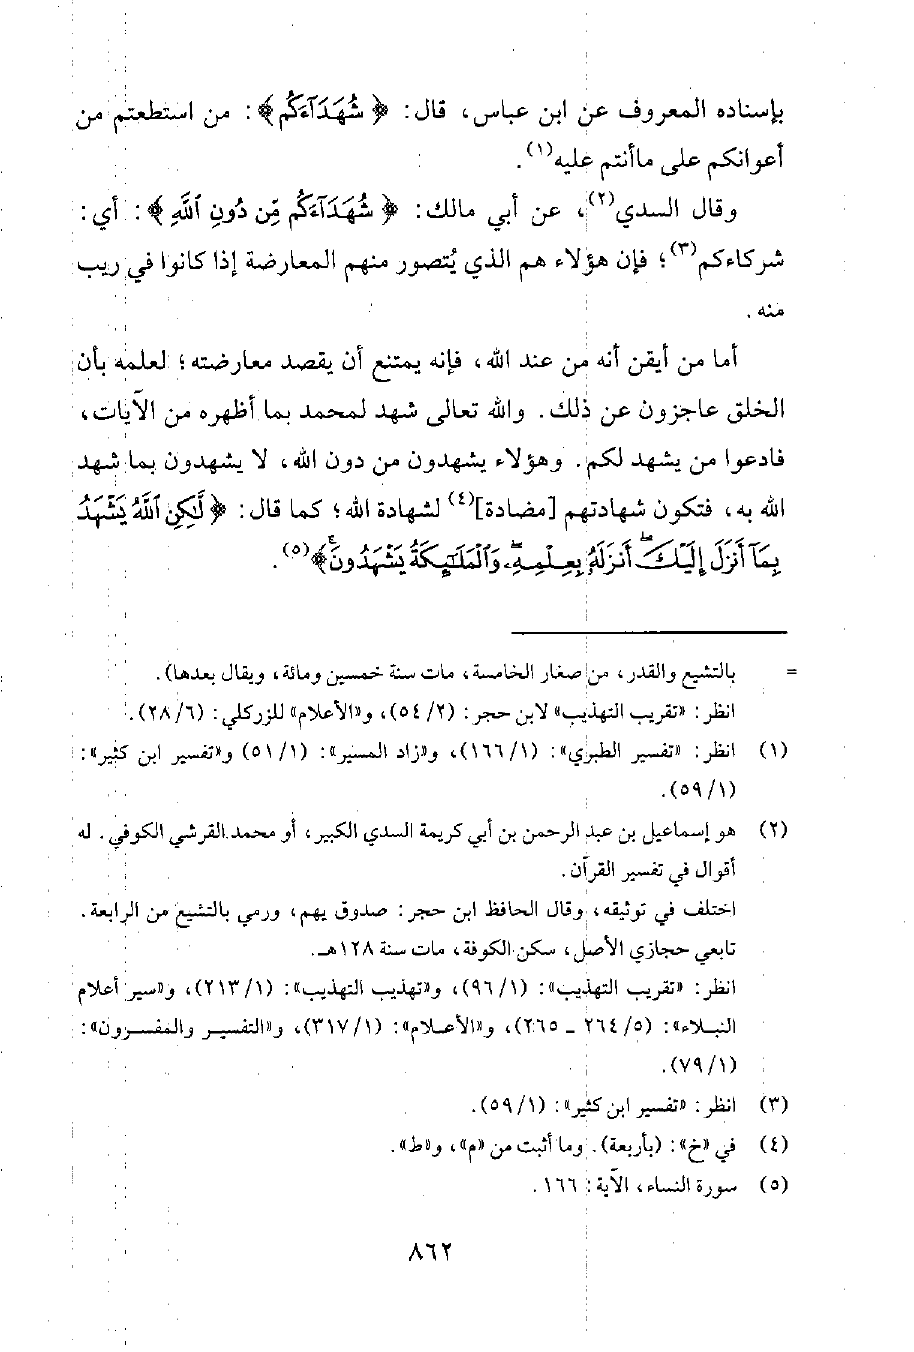 بإسناده المعروف عن ابن عباس، قال: ﴿شُهَدَآءَكُم﴾: من استطعتم من
أعوانكم على ماأنتم عليه(١).
وقال السدي(٢)، عن أبي مالك: ﴿شُهَدَآءَكُم مِّن دُونِ ٱللَّهِ﴾: أي:
شركاءكم(٣)؛ فإن هؤلاء هم الذي يُتصور منهم المعارضة إذا كانوا في ريب
منه.
أما من أيقن أنه من عند الله، فإنه يمتنع أن يقصد معارضته؛ لعلمه بأن
الخلق عاجزون عن ذلك. والله تعالى شهد لمحمد بما أظهره من الآيات،
فادعوا من يشهد لكم. وهؤلاء يشهدون من دون الله، لا يشهدون بما شهد
الله به، فتكون شهادتهم [مضادة](٤) لشهادة الله؛ كما قال: ﴿لَّٰكِنِ ٱللَّهُ يَشْهَدُ
بِمَآ أَنزَلَ إِلَيْكَۖ أَنزَلَهُۥ بِعِلْمِهِۦۖ وَٱلْمَلَٰٓئِكَةُ يَشْهَدُونَۚ﴾(٥).
= بالتشيع والقدر، من صغار الخامسة، مات سنة خمسين ومائة، ويقال بعدها).
انظر: «تقريب التهذيب» لابن حجر: (٢/ ٥٤)، و«الأعلام» للزركلي: (٦/ ٢٨).
(١) انظر: «تفسير الطبري»: (١/ ١٦٦)، و«زاد المسير»: (١/ ٥١) و«تفسير ابن كثير»:
(١/ ٥٩).
(٢) هو إسماعيل بن عبد الرحمن بن أبي كريمة السدي الكبير، أو محمد القرشي الكوفي. له
أقوال في تفسير القرآن.
اختلف في توثيقه، وقال الحافظ ابن حجر: صدوق يهم، ورمي بالتشيع من الرابعة.
تابعي حجازي الأصل، سكن الكوفة، مات سنة ١٢٨هـ.
انظر: «تقريب التهذيب»: (١/ ٩٦)، و«تهذيب التهذيب»: (١/ ٢١٣)، و«سير أعلام
النبلاء»: (٥/ ٢٦٤ - ٢٦٥)، و«الأعلام»: (١/ ٣١٧)، و«التفسير والمفسرون»:
(١/ ٧٩).
(٣) انظر: «تفسير ابن كثير»: (١/ ٥٩).
(٤) في «خ»: (بأربعة). وما أثبت من «م»، و«ط».
(٥) سورة النساء، الآية: ١٦٦.
٨٦٢